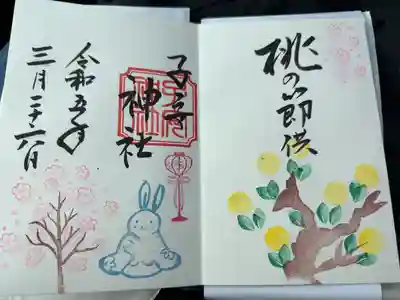 桃の節供
子守神社
令和五年
三月二十六日